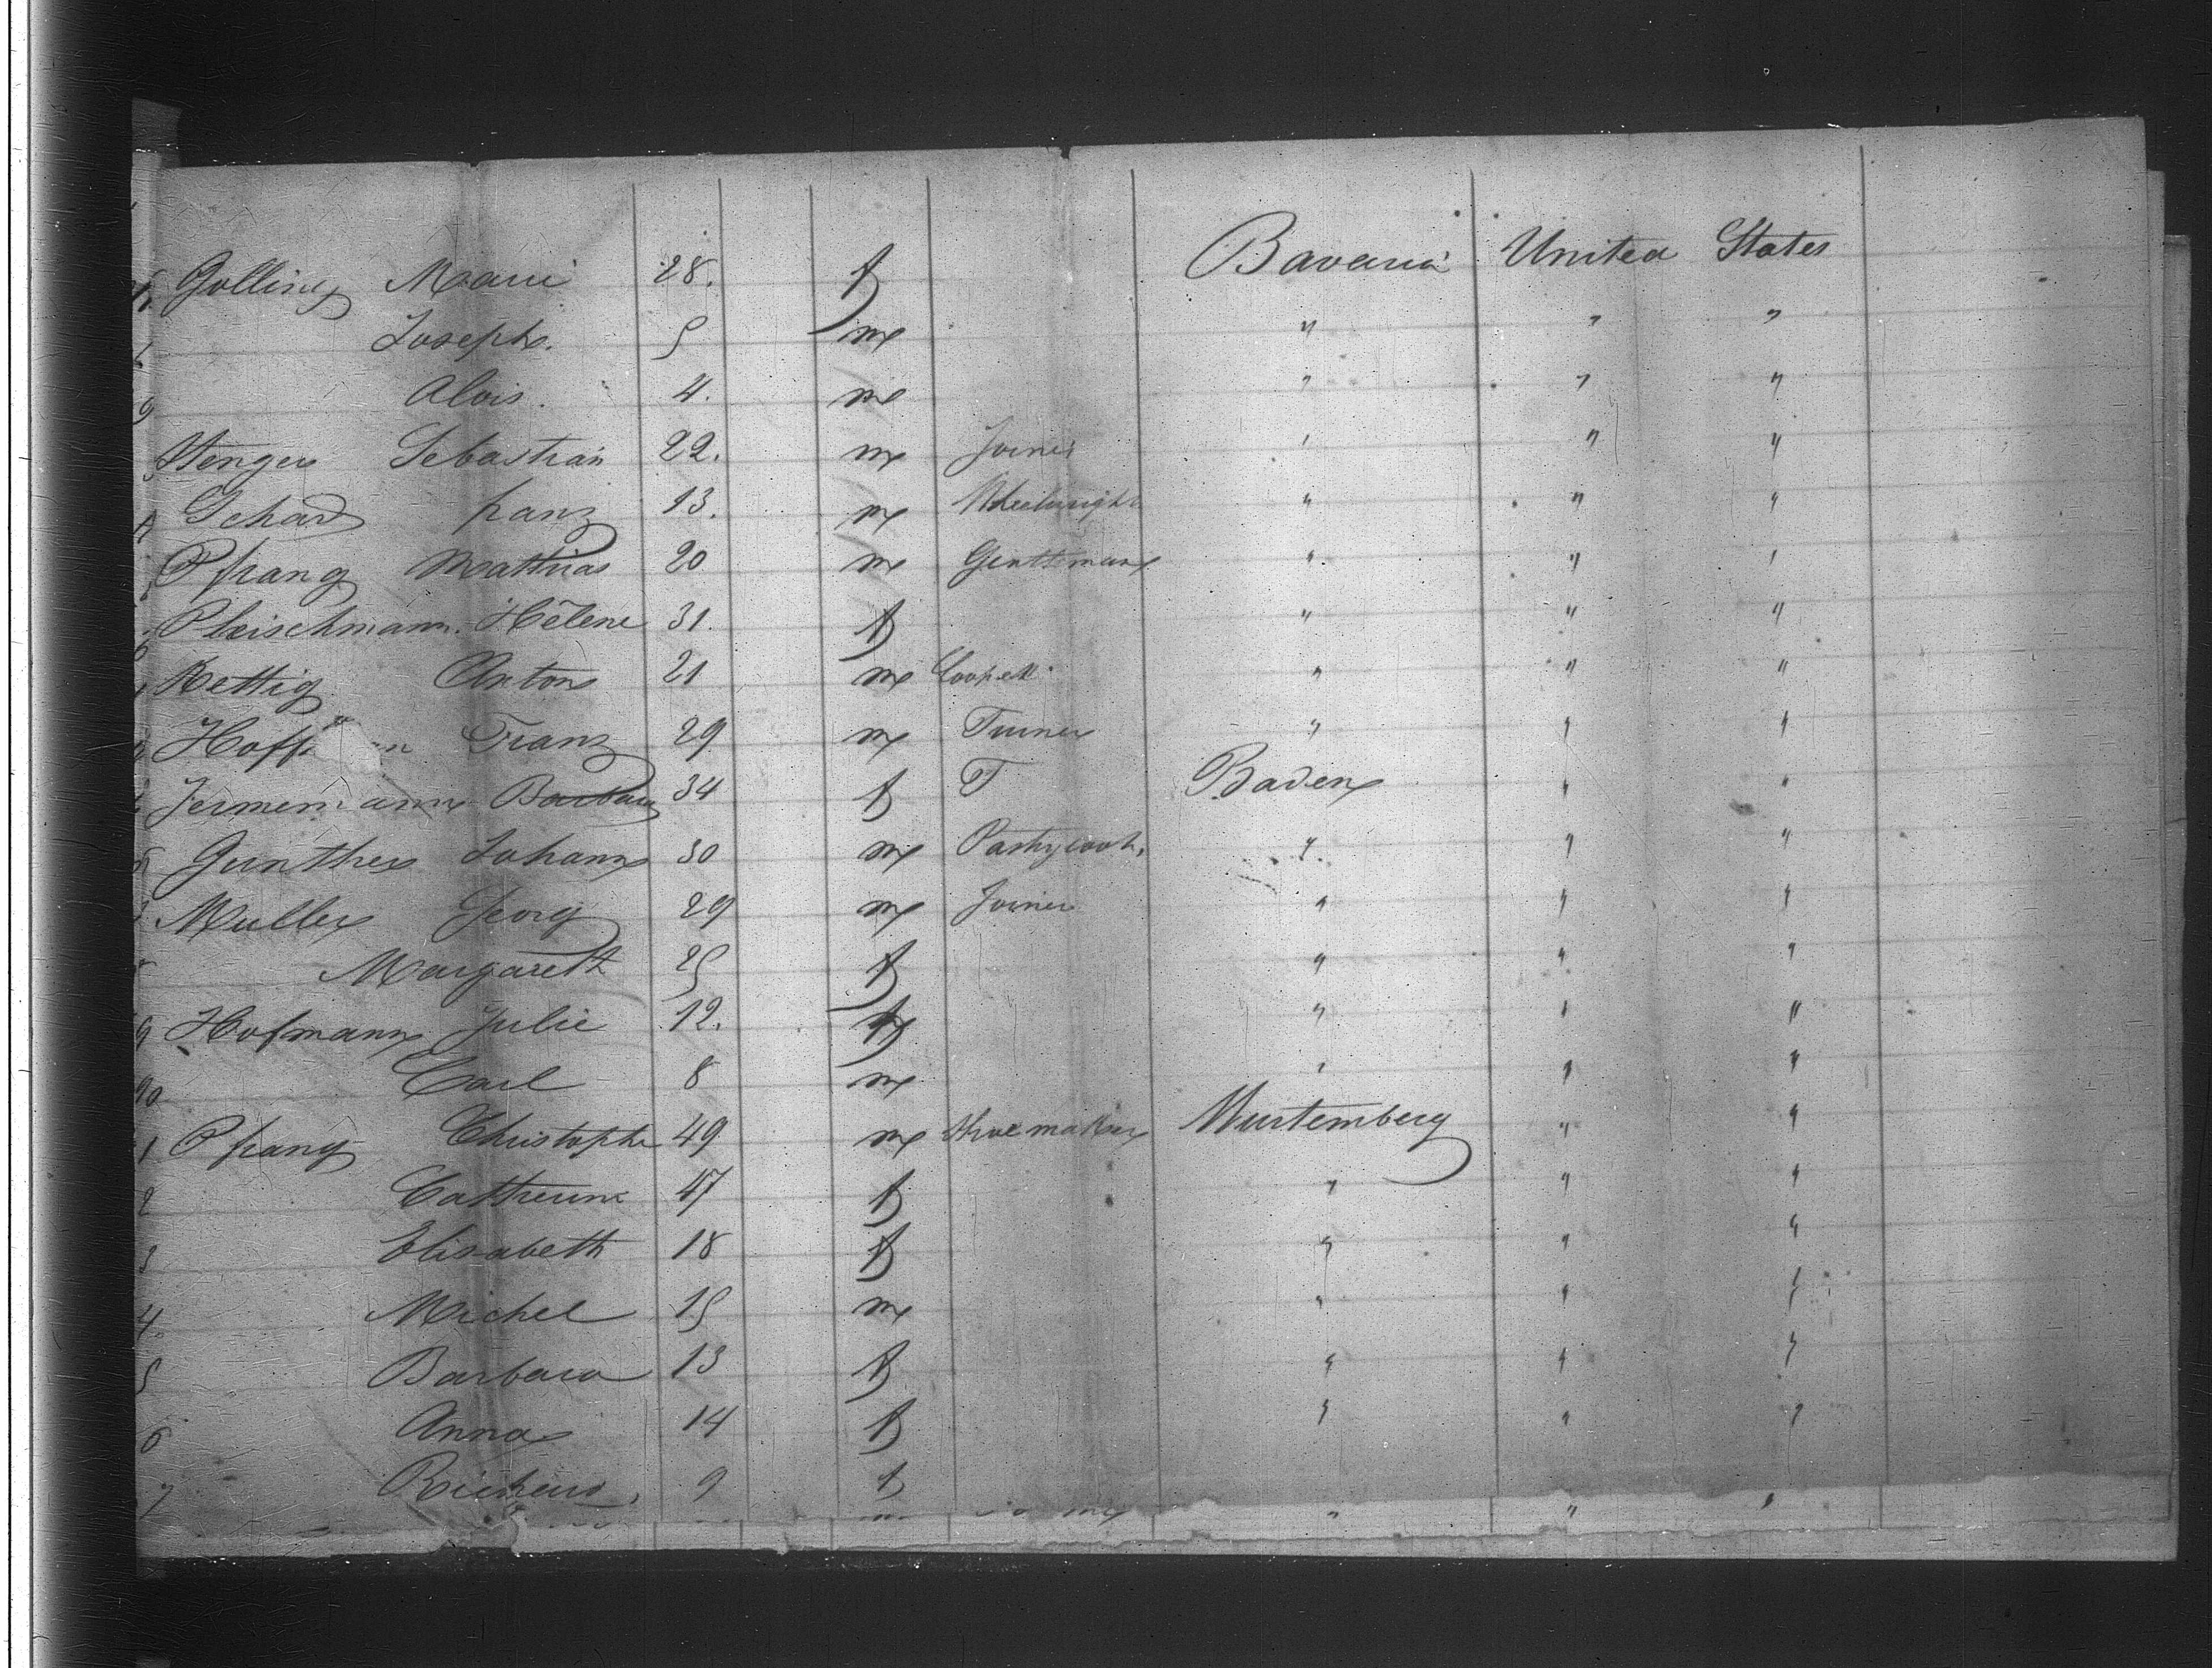 Golling Marie 28. f Bavaria United States
Joseph. 5 m " " "
9 Alois. 4. m " " "
Stenger Sebastian 22. m Joiner " " "
Schad franz 13. m Wheelwright " " "
Pfrang Matthias 20 m Gentleman " " "
Pleischmann. Hélène 31. f " " "
Rettig Anton 21 m " " "
Franz 29 m Turner " " "
Barbara 34 f T Baden " "
Gunther Johann 30 m Pastrycook. " " "
Muller Georg 29 m Joiner " " "
Margareth 25 f " " "
9 Hofmann Julie 12. f " " "
90 Carl 8 m " " "
1 Pfrang Christophe 49 m Shoemaker Wurtemberg " "
2 Catherine 47 f " " "
3 Elisabeth 18 f " " "
4. Michel 15 m " " "
5 Barbara 13 f " " "
6 Anna 14 f " " "
7 9 f
" " "